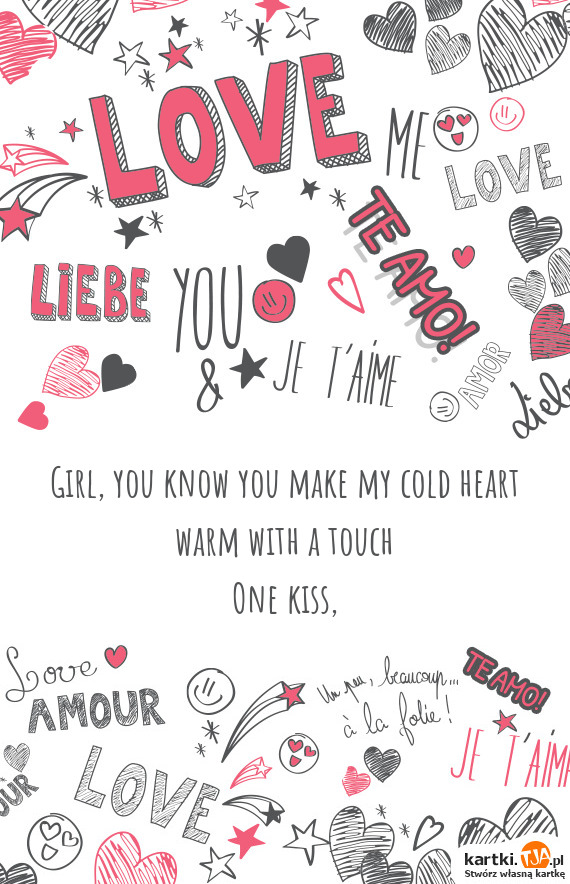 LOVE
ME
LOVE
TE AMO!
LIEBE
YOU
&
JE T'AIME
AMOR
Girl, you know you make my cold heart
warm with a touch
One kiss,
Love
AMOUR
Un peu, beaucoup...
à la folie!
TE AMO!
JE T'AIM
LOVE
kartki.TJA.pl
Stwórz własną kartkę